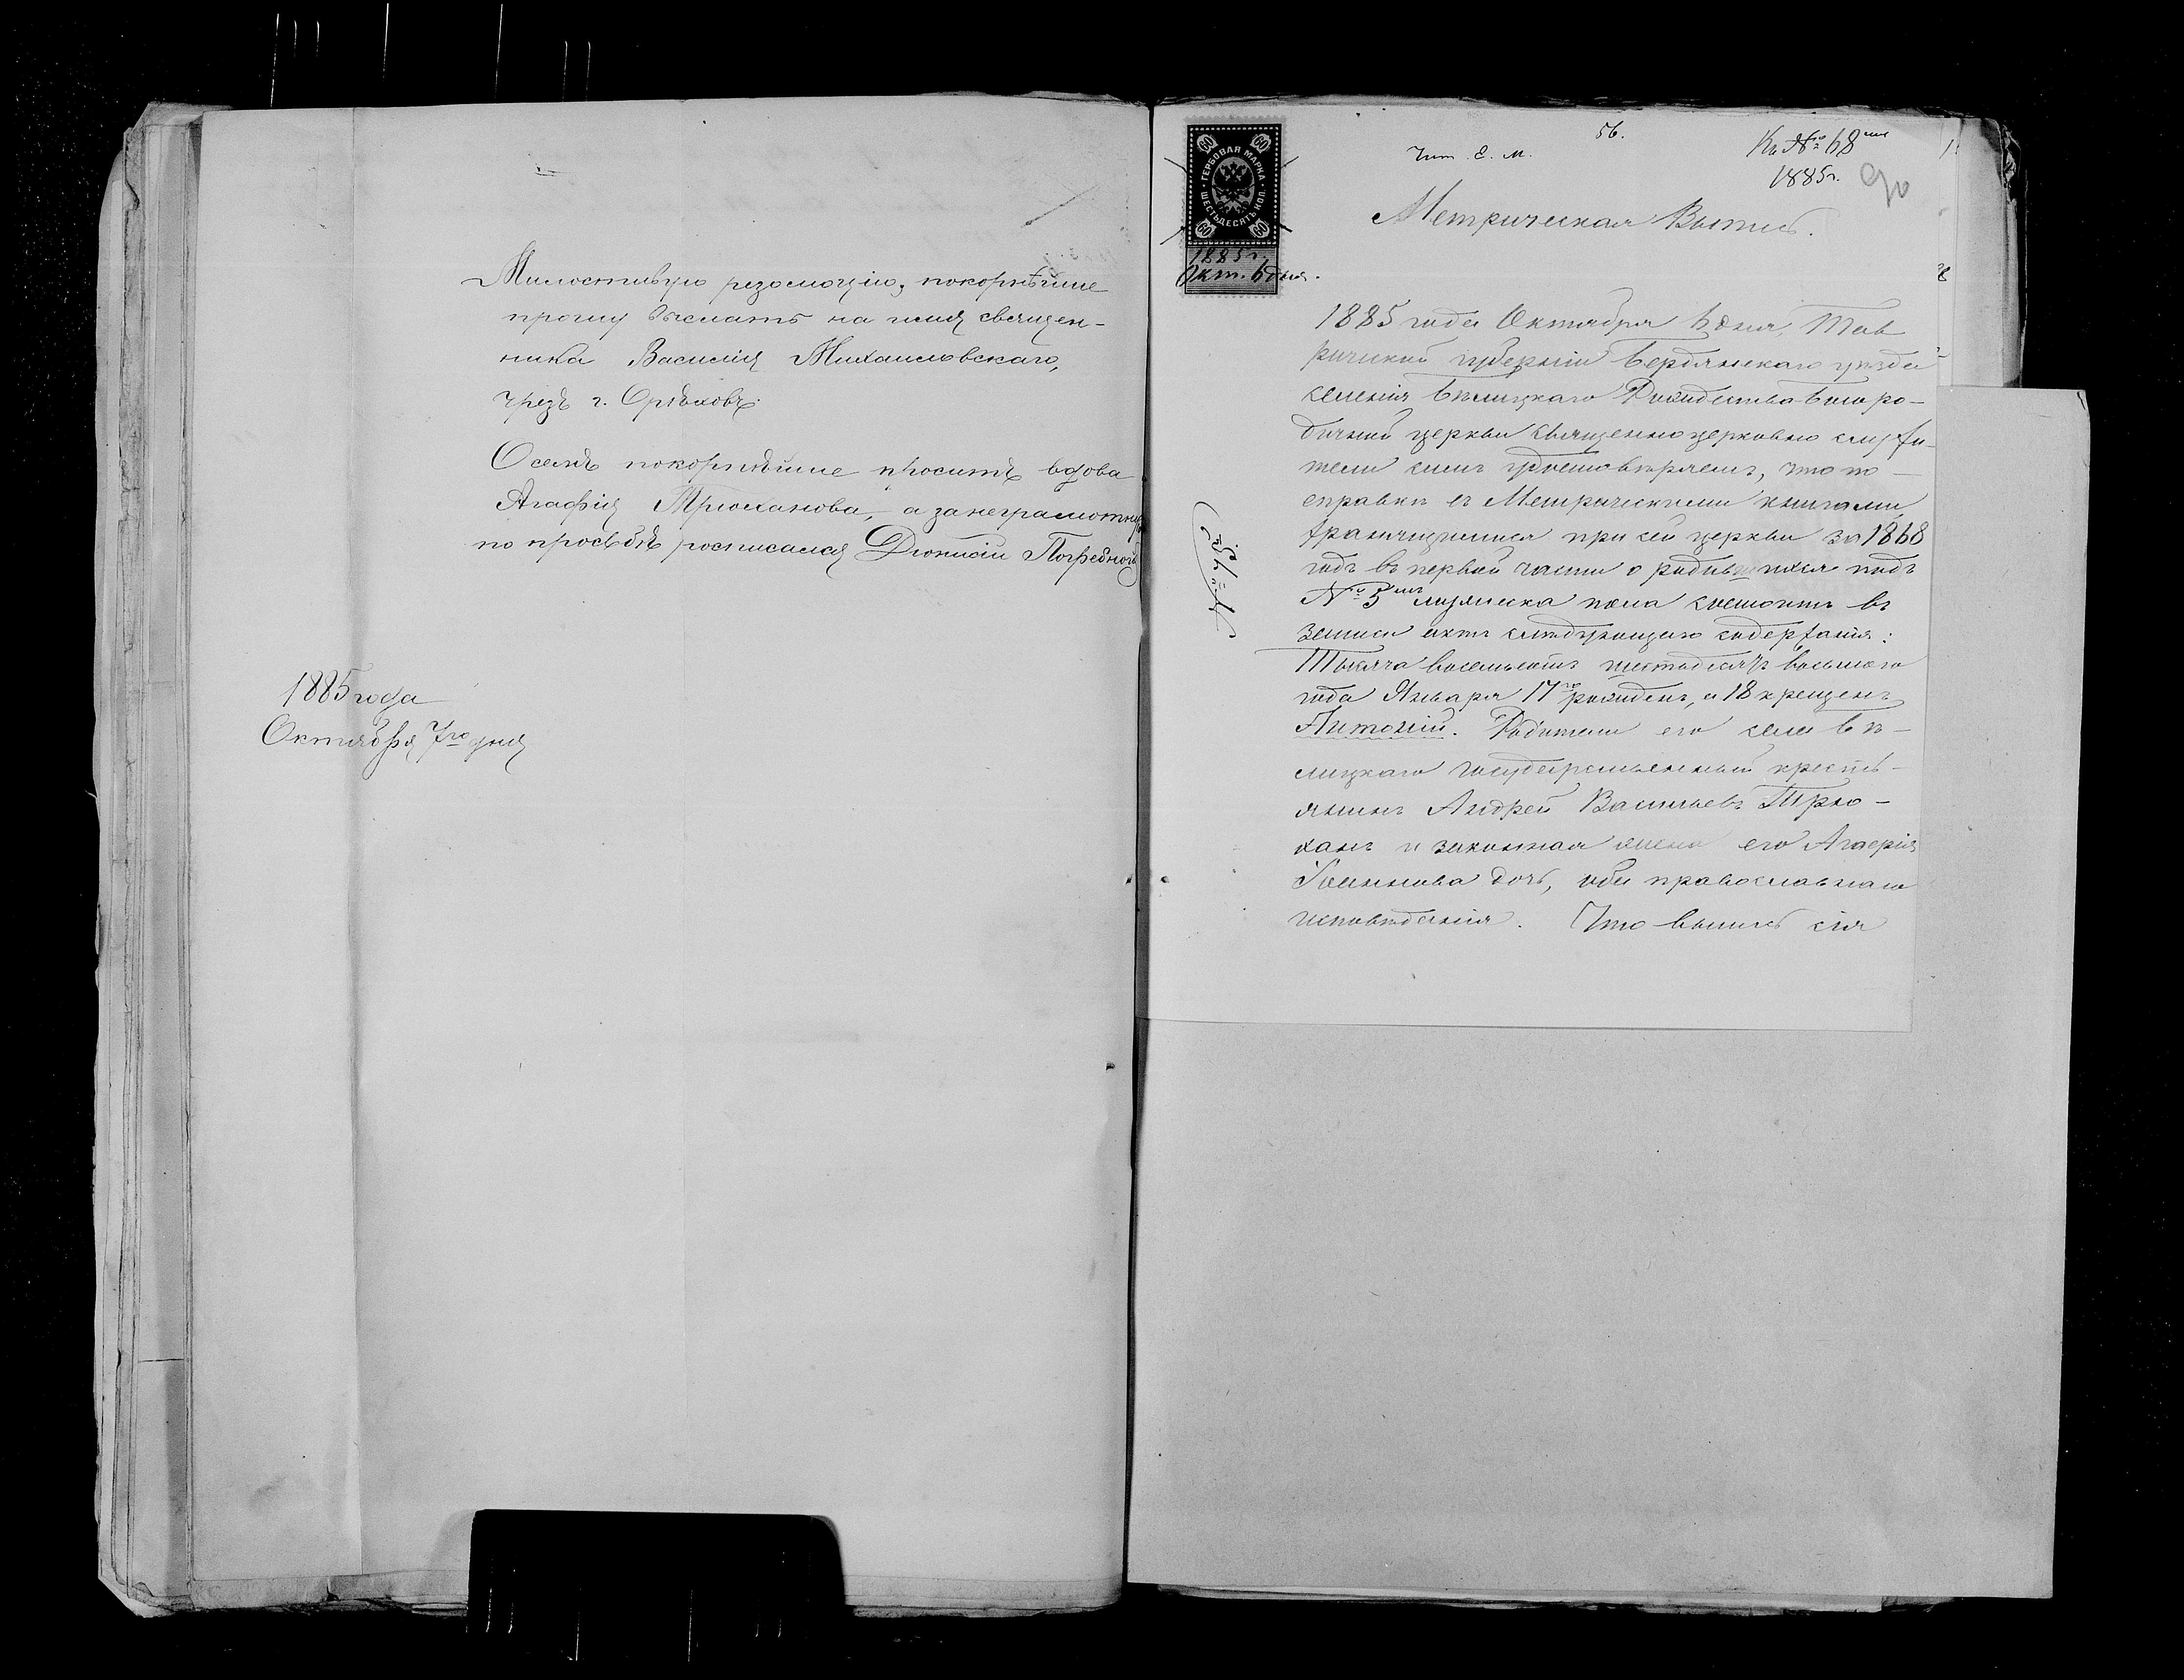 Милостивую резолюцію, покорнѣйше
прошу выслать на имя священ-
ника Василія Михайловскаго,
чрезъ г. Орѣховъ.
Осемъ покорнѣйше проситъ вдова
Агафія Трюханова, а за неграмотную
по просьбѣ росписался Діонисій Погребной
1885 года
Октября 7го дня
56.
Чит. Е. М.
Къ № 68
1885 г.
90
ГЕРБОВАЯ МАРКА
ШЕСТЬДЕСЯТЪ КОП.
60 60 60 60
1885 г.
Окт. 6 дня.
Метрическая Выпись.
1885 года Октября 6 дня Тав
рической губерніи Бердянскаго уѣзда
селенія Бѣлицкаго Рождество-Богоро-
дичной церкви священноцерковно служи-
тели симъ удостовѣряемъ, что по
справкѣ съ Метрическими книгами,
хранящимися при сей церкви за 1868
годъ въ первой части о родившихся подъ
№ 5мъ мужеска пола состоитъ въ
записи актъ слѣдующаго содержанія:
Тысяча восемьсотъ шестьдесятъ восьмого
года Января 17го рожденъ, а 18 крещенъ
Антоній. Родители его села Бѣ-
лицкаго государственный кресть-
янинъ Андрей Васильевъ Трю-
ханъ и законная жена его Агафія
Іоаннова дочь, оба православнаго
исповѣданія. Что выпись сія